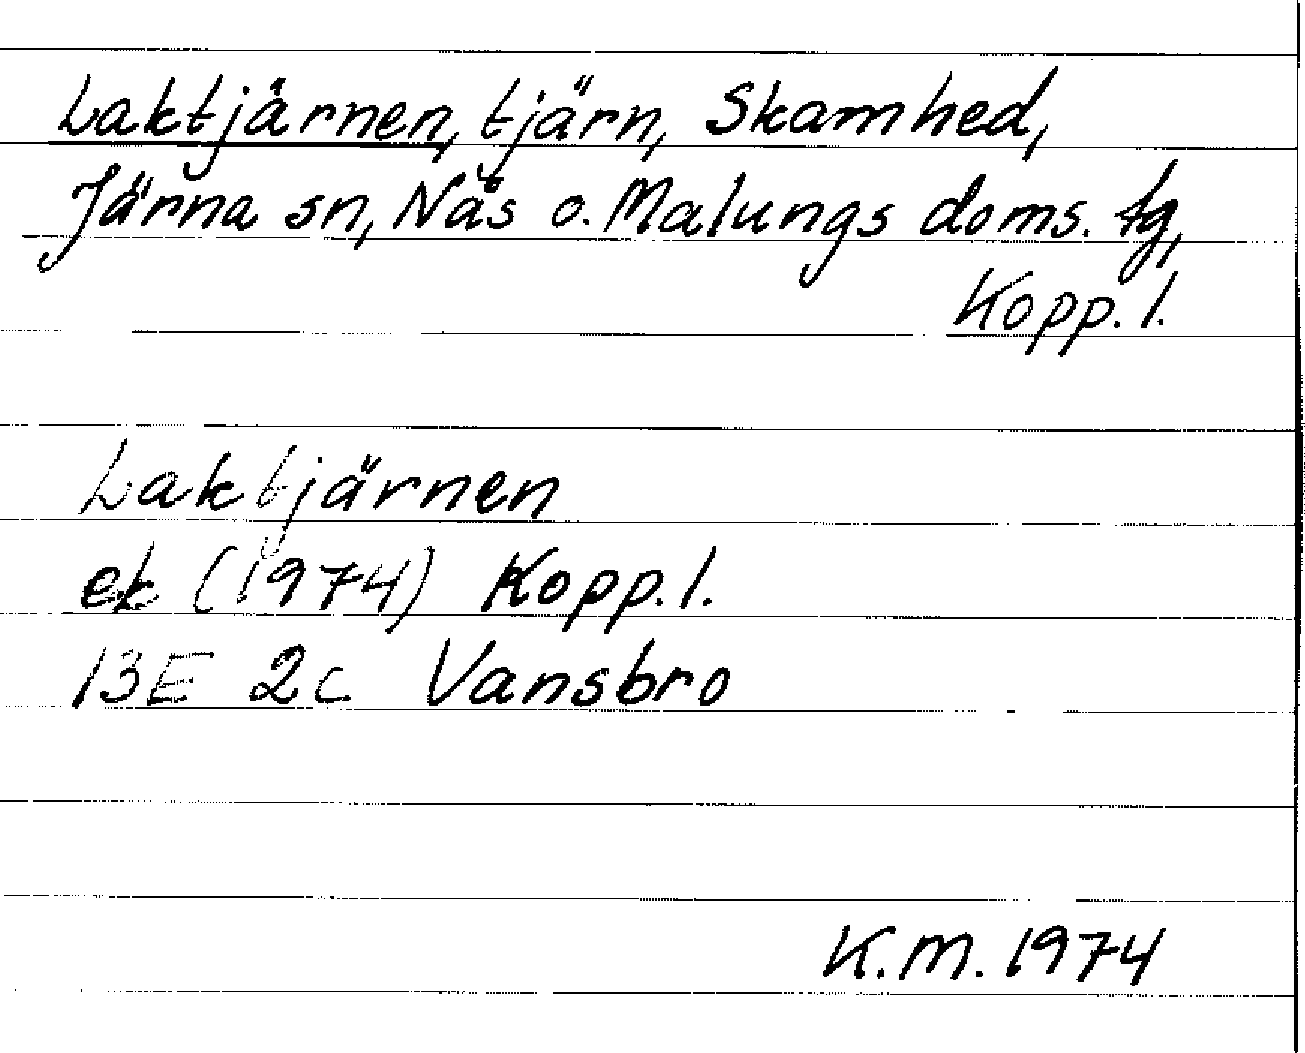 Laktjärnen, tjärn, Skamhed,
Järna sn, Nås o. Malungs doms. tg,
Kopp. l.
Laktjärnen
ek (1974) Kopp. l.
13E 2c Vansbro
K.M. 1974